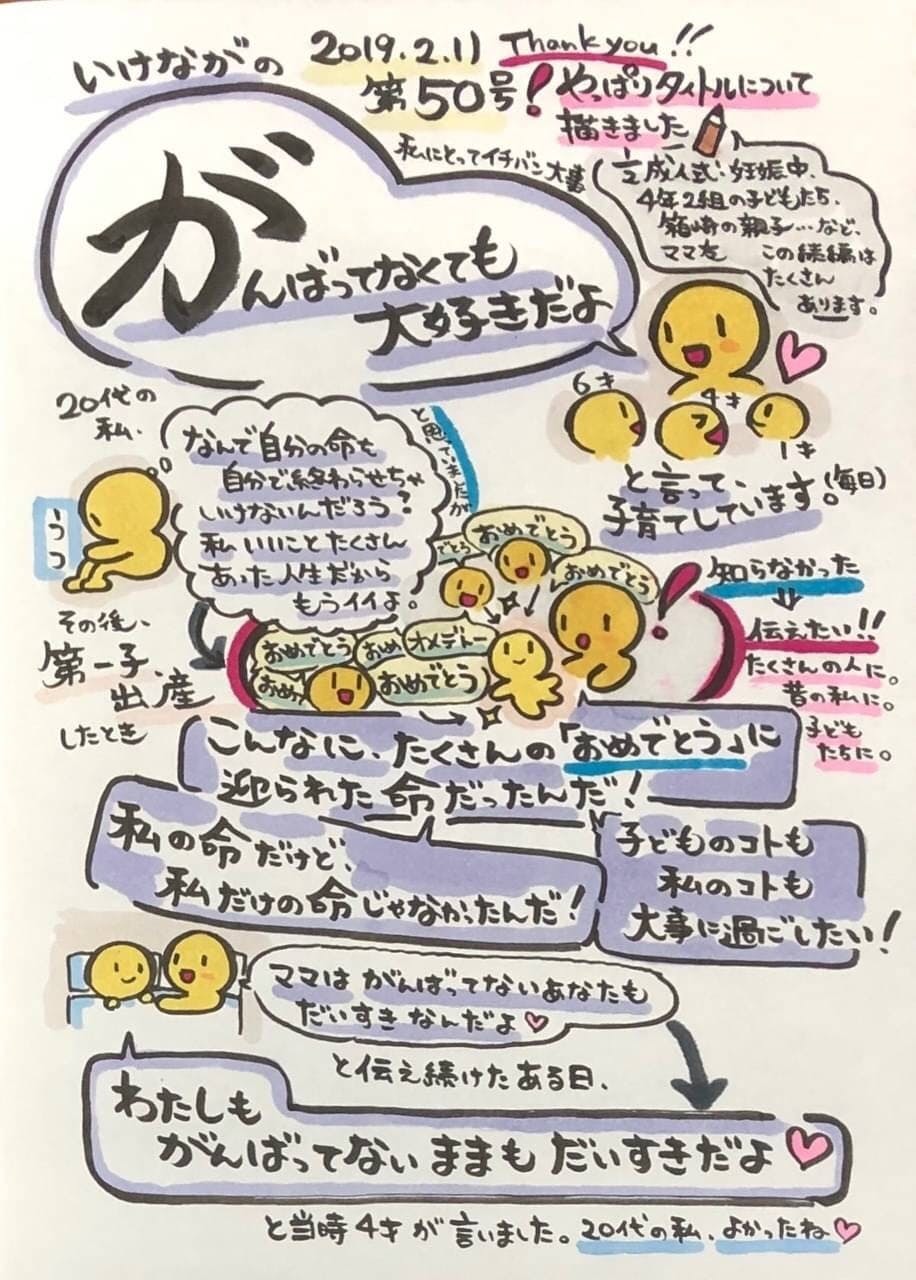 いけながの
2019.2.11 Thank you!!
第50号! やっぱりタイトルについて
描きました
私にとってイチバン大事
がんばってなくても
大好きだよ
1/2成人式・妊娠中、
4年2組の子どもたち、
箱崎の親子…など、
ママ友 この続編は
たくさん
あります。
6才
4才
1才
と言って、
子育てしています。(毎日)
20代の
私、
うつ
なんで自分の命を
自分で終わらせちゃ
いけないんだろう?
私いいことたくさん
あった人生だから
もうイイよ。
と思っていましたが
その後、
第一子
出産
したとき
でとう
おめでとう
おめでとう
おめでとう
おめ
オメデトー
おめ
おめでとう
!
知らなかった
伝えたい!!
たくさんの人に。
昔の私に。
子ども
たちに。
こんなに、たくさんの「おめでとう」に
迎られた命だったんだ!
私の命だけど、
私だけの命じゃなかったんだ!
子どものコトも
私のコトも
大事に過ごしたい!
ママは がんばってないあなたも
だいすきなんだよ♡
と伝え続けたある日、
わたしも
がんばってない ままも だいすきだよ♡
と当時4才が言いました。20代の私、よかったね♡